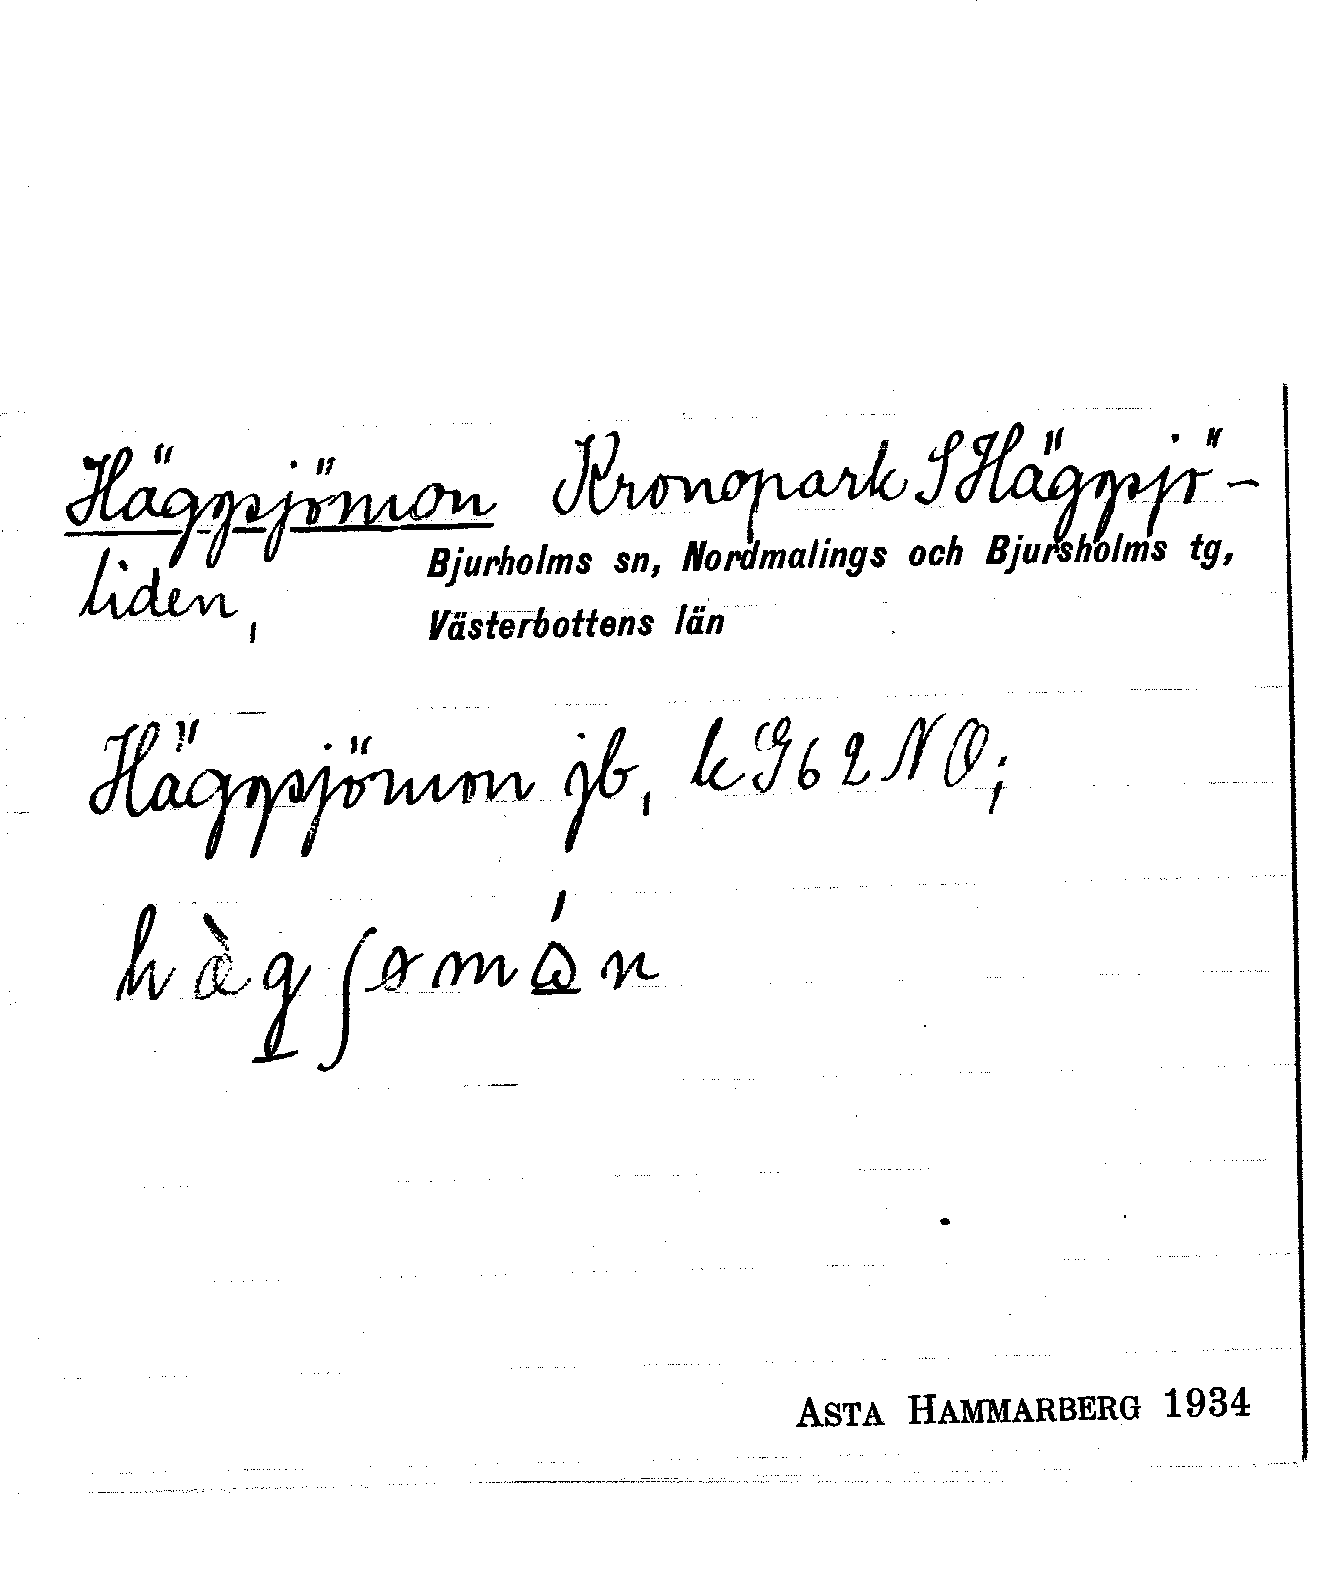 Häggsjömon Kronopark S Häggsjö-
liden,
Bjurholms sn, Nordmalings och Bjursholms tg,
Västerbottens län
Häggsjömon jb, k G 62 NO;
ASTA HAMMARBERG 1934